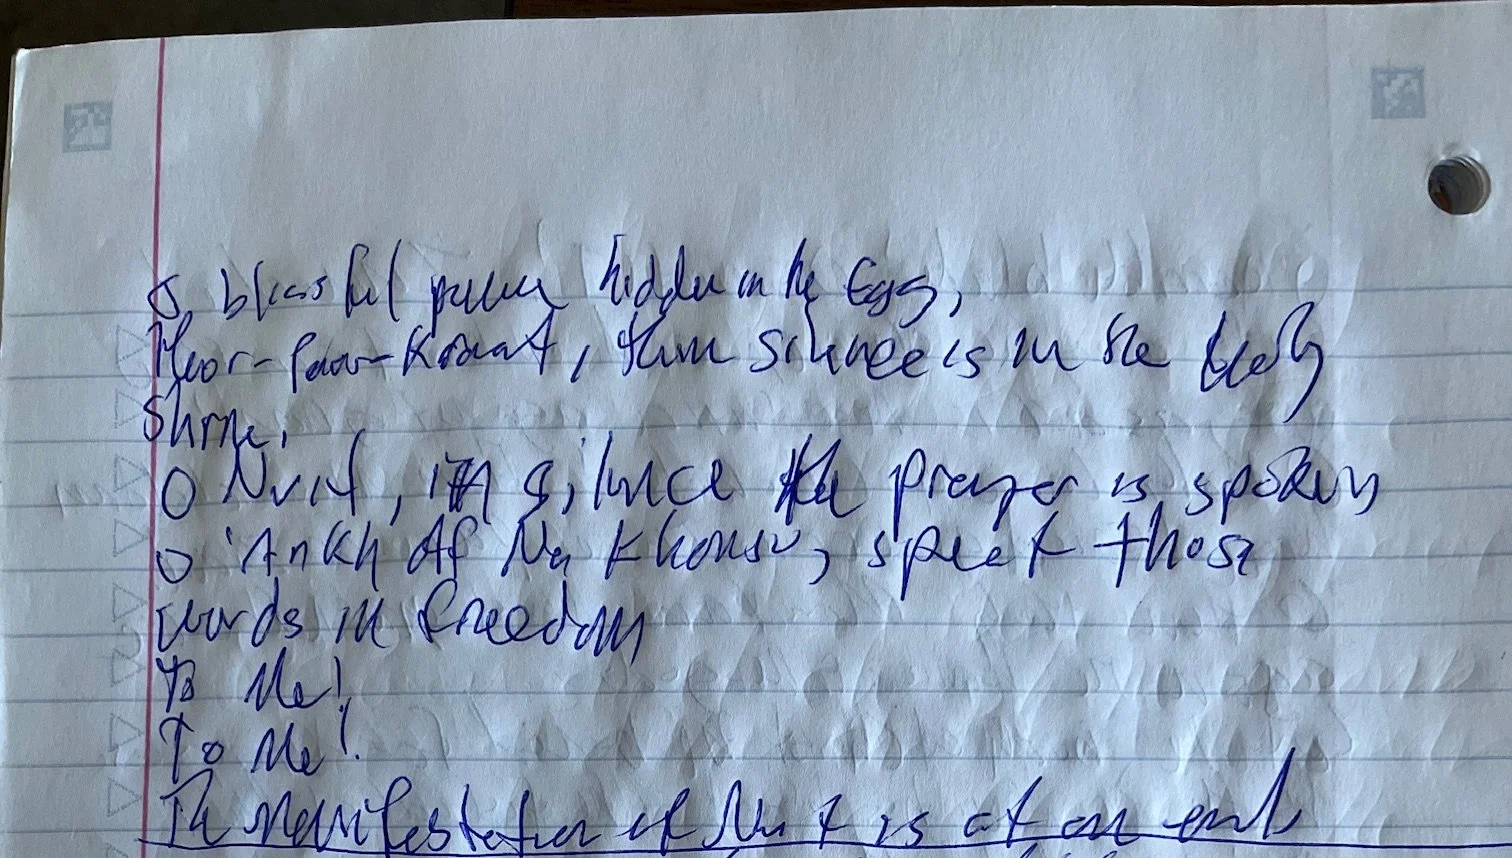 O, blissful power hidden in the Egg,
Hoor-paar-Kraat, thine silence is in the
Shrine.
O Nuit, in silence the prayer is spoken
O 'Ankh Af Na Khonsu, speak those
words in freedom
To Me!
To Me!
The Manifestation of Nuit is at an end